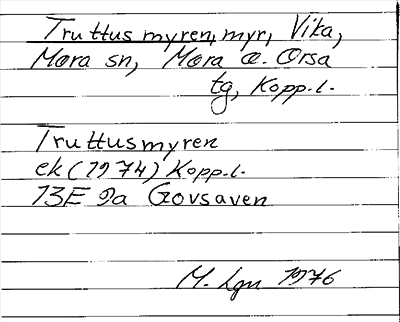 Truttusmyren, myr, Vika,
Mora sn, Mora o. Orsa
tg, Kopp.l.
Truttusmyren
ek (1974) Kopp.l.
13E 9a Govsaven
M. Lgn 1976